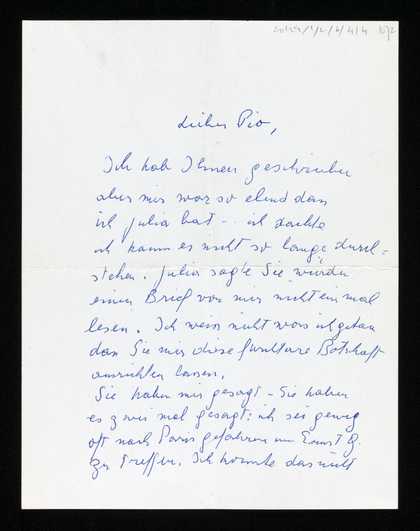 Lieber Pio,
Ich hab Ihnen geschrieben
aber mir war so elend dass
ich Julia bat - ich dachte
ich kann es nicht so lange durch=
stehen. Julia sagte Sie würden
einen Brief von mir nicht einmal
lesen. Ich weiss nicht was ich getan
dass Sie mir diese furchtbare Botschaft
ausrichten lassen.
Sie haben mir gesagt - Sie haben
es zwei mal gesagt: ich sei genug
oft nach Paris gefahren um Ernst
zu treffen. Ich konnte das nicht